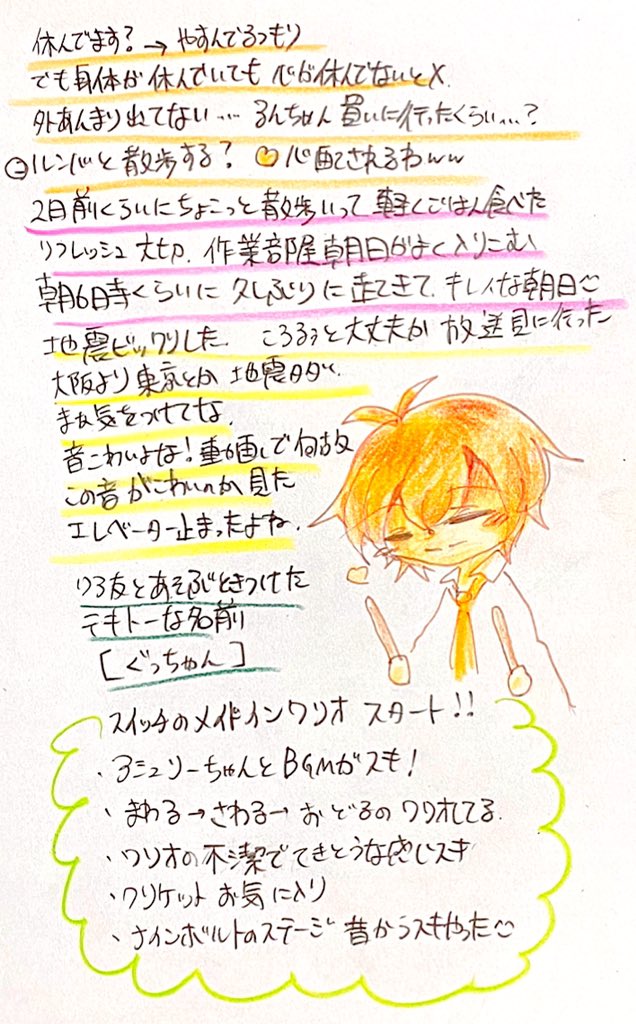 休んでます?→やすんでるつもり
でも身体が休んでいても心が休んでないと×.
外あんまり出てない… るんちゃん 買いに行ったくらい…?
ルンバと散歩する? 心配されるわww
2日前くらいにちょこっと散歩いって 軽くごはん食べた
リフレッシュ大切. 作業部屋朝日がよく入りこむ
朝6時くらいに 久しぶりに 走てきて. キレイな朝日
地震ビックリした. ころるぅと大丈夫か 放送見に行った
大阪より東京とか 地震ヤダ.
まぢ気をつけてな.
音こわいよな! 動画で何故
この音がこわいのか見た
エレベーター止まったよね.
リア友とあそぶときつけた
テキトーな名前
[ぐっちゃん]
スイッチのメイドインワリオ スタート!!
・アシュリーちゃんとBGMがスキ!
・まわる→さわる→おどるのワリオしてる.
・ワリオの不潔でてきとうな感じスキ
・クリケット お気に入り
・ナインボルトのステージ 昔からスキやった